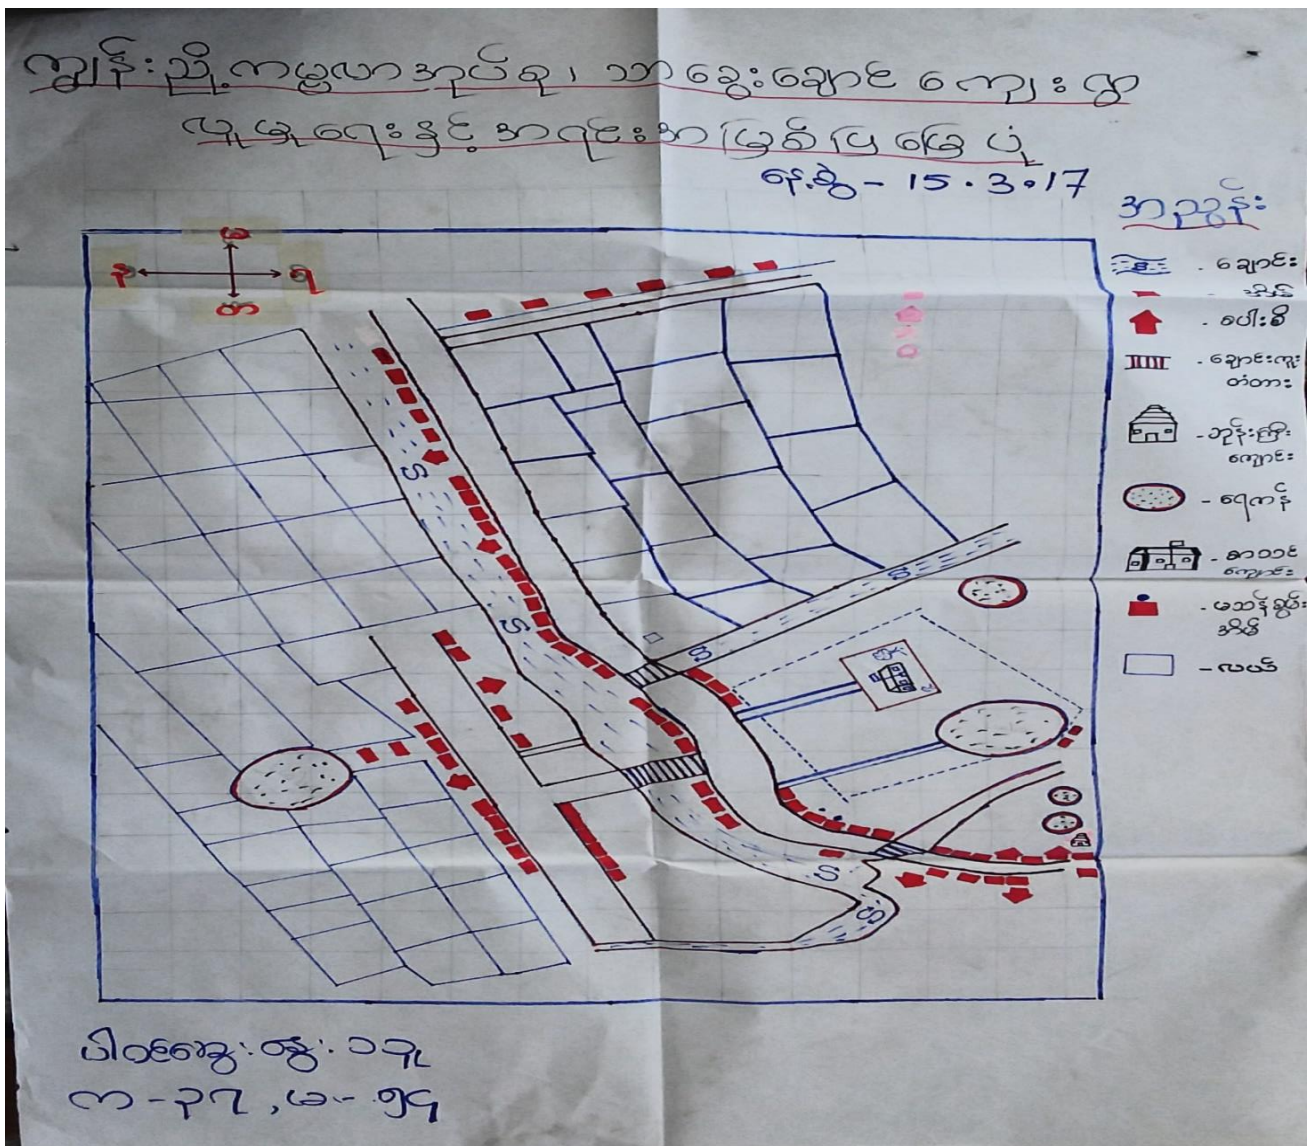 ကျွန်းညိုကမ္ဗလာအုပ်စု၊ သာခွေးချောင် ကျေးရွာ
လူမှုရေးနှင့် အရင်းအမြစ်ပြ မြေပုံ
နေ့စွဲ - 15.3.17
အညွှန်း
- ချောင်း
- အိမ်
- ပေါးစီ
- ချောင်းကူး
တံတား
- ဘုန်းကြီး
ကျောင်း
- ရေကန်
- စာသင်
ကျောင်း
- မသန်စွမ်း
အိမ်
- လယ်
S
S
S
S
S
S
က - ၃၇ , မ - ၅၄